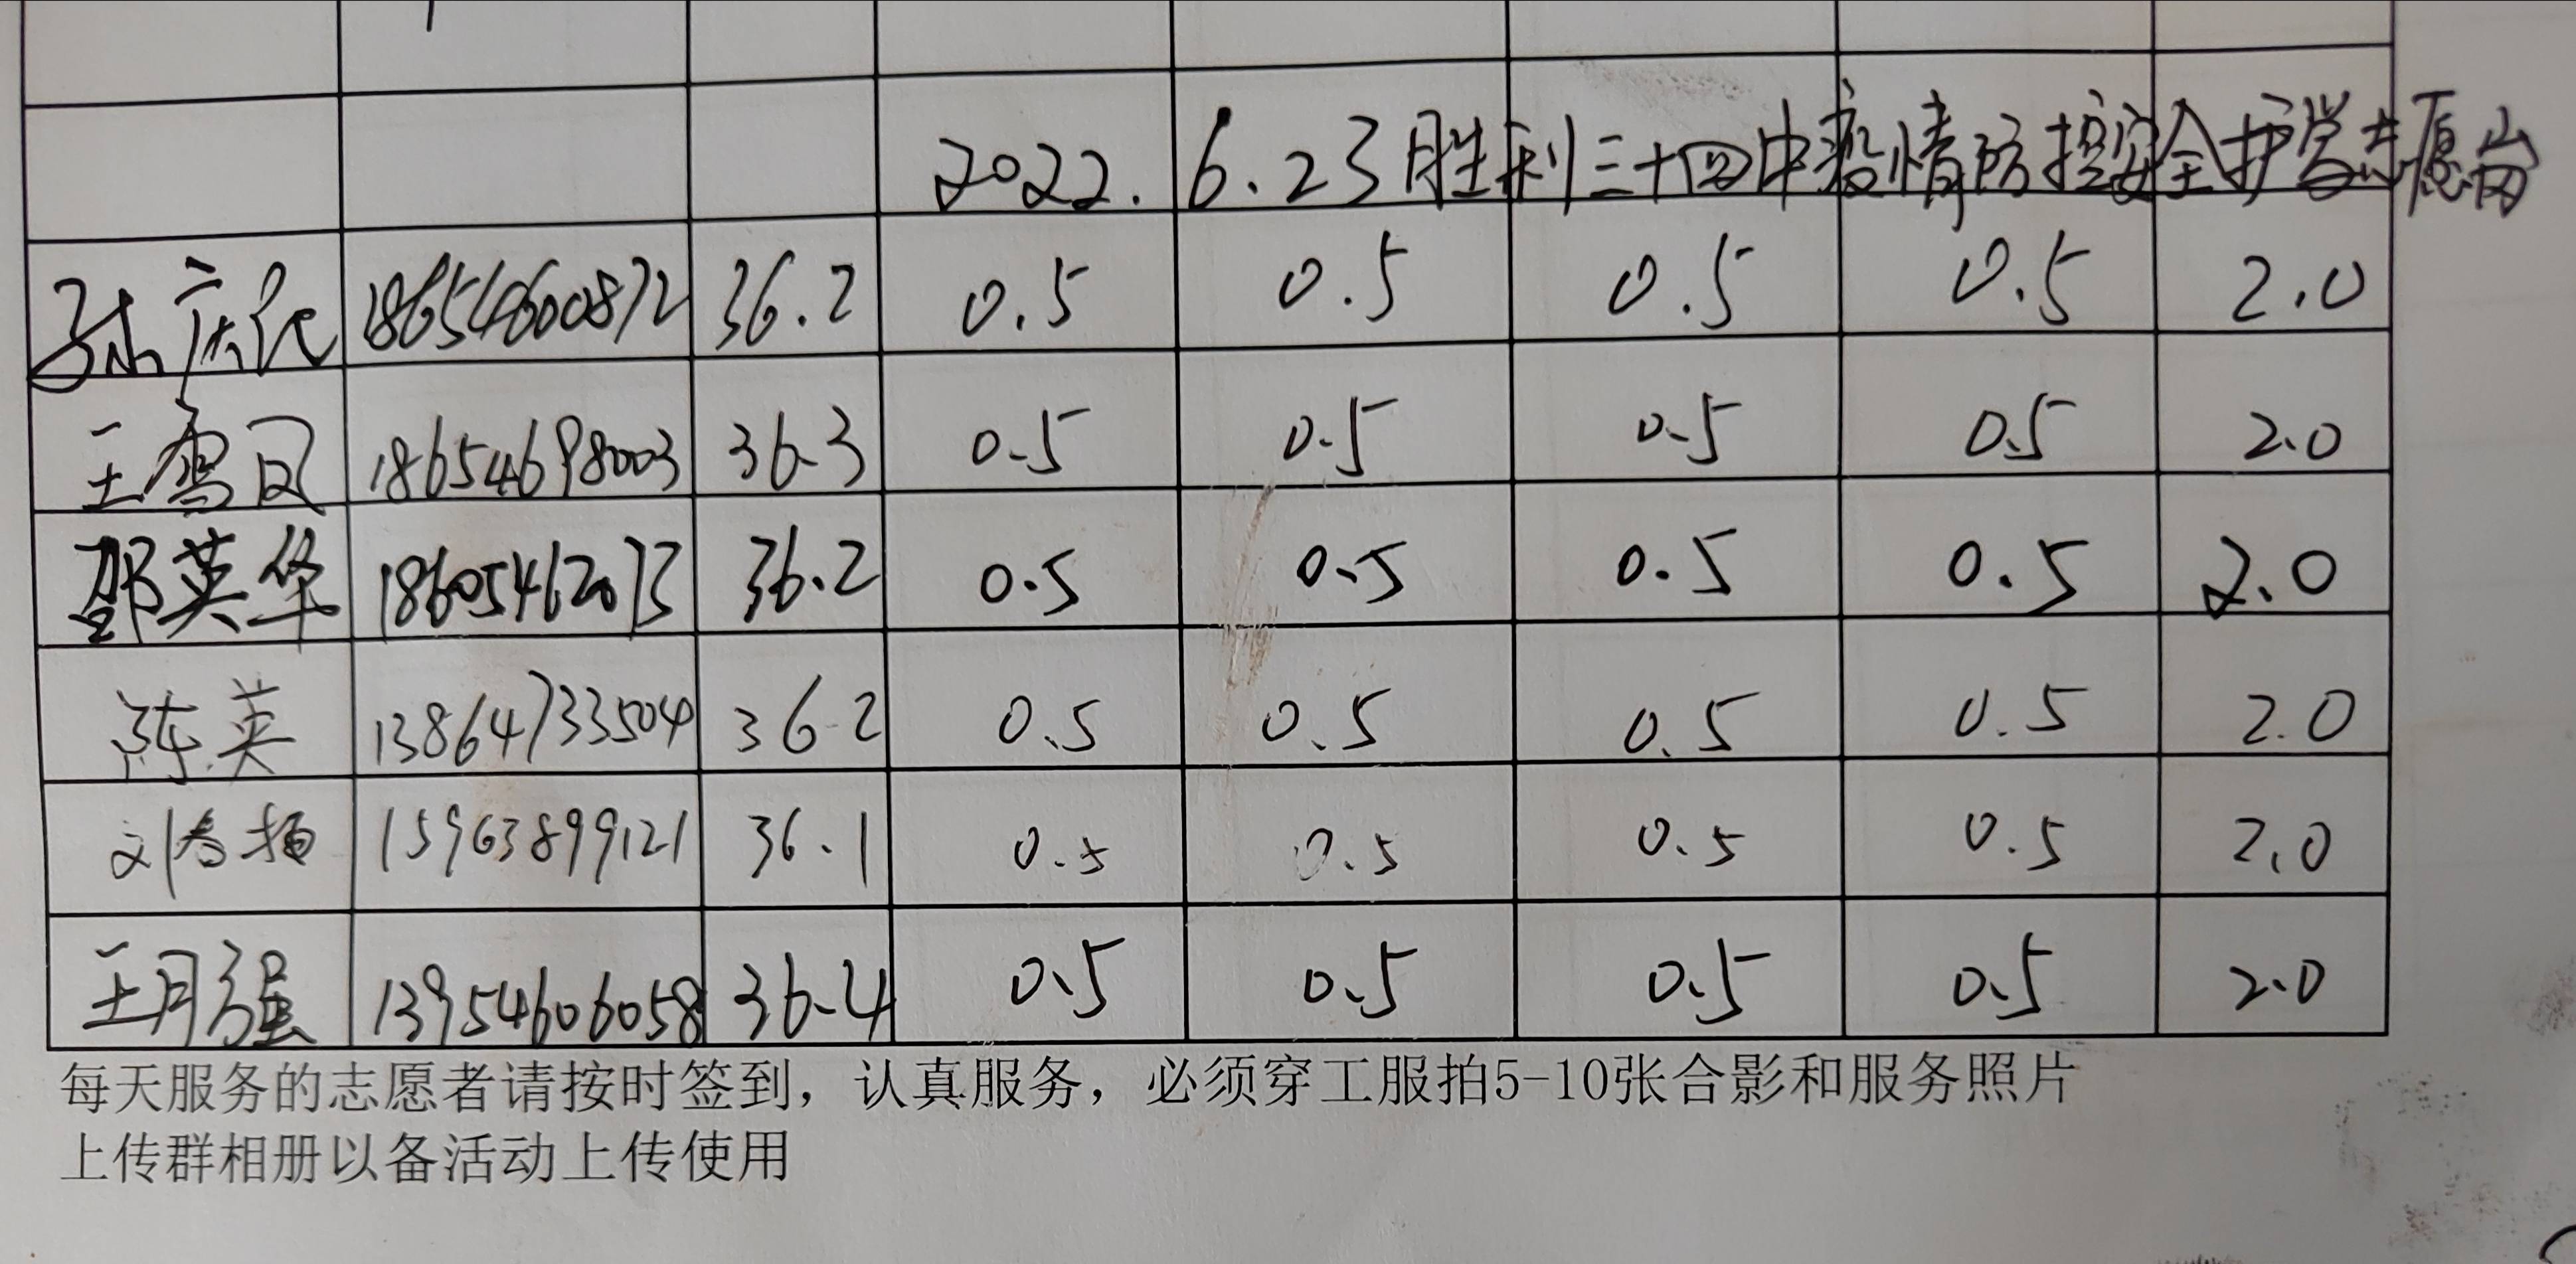 2022.6.23胜利三十四中疫情防控安全护学志愿岗
孙庆代 18654600872 36.2 0.5 0.5 0.5 0.5 2.0
王雪 18654698003 36.3 0.5 0.5 0.5 0.5 2.0
邵英华 18605462073 36.2 0.5 0.5 0.5 0.5 2.0
陈英 13864733504 36.2 0.5 0.5 0.5 0.5 2.0
刘春 15963899121 36.1 0.5 0.5 0.5 0.5 2.0
王月强 13954606058 36.4 0.5 0.5 0.5 0.5 2.0
每天服务的志愿者请按时签到，认真服务，必须穿工服拍5-10张合影和服务照片
上传群相册以备活动上传使用